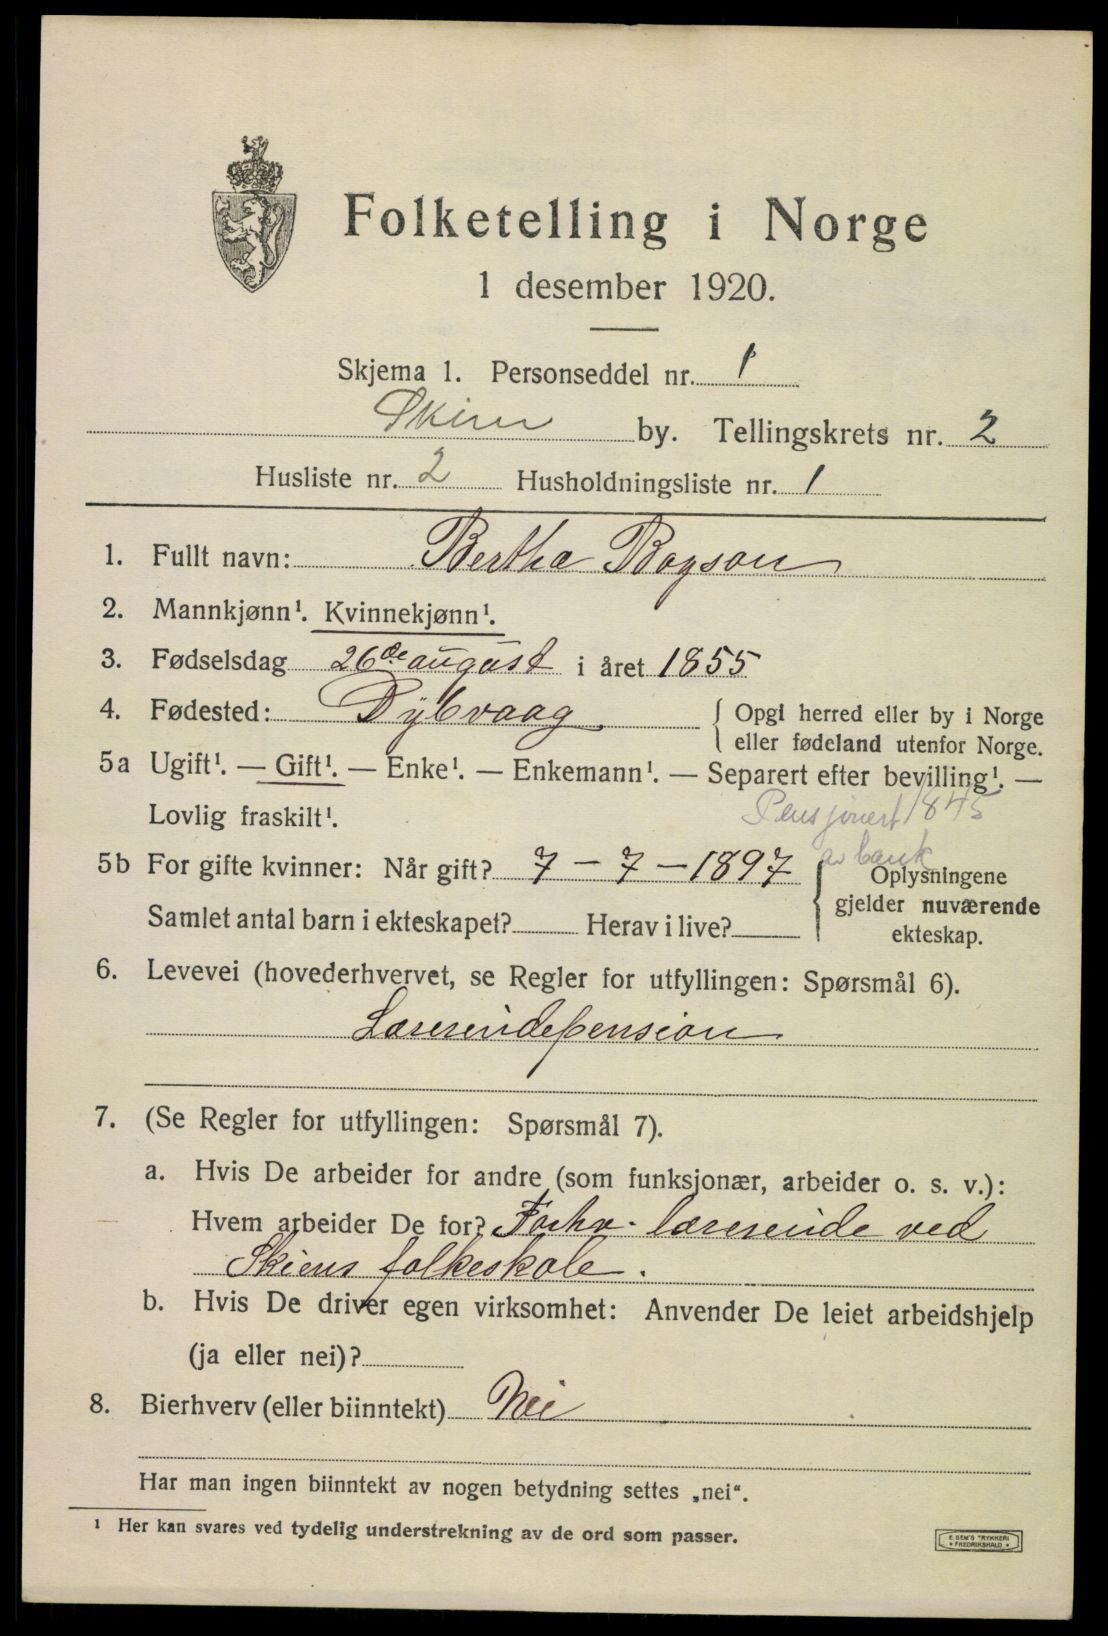 Folketelling i Norge
1 desember 1920.
Skjema 1. Personseddel nr. 1
Skien by. Tellingskrets nr. 2
Husliste nr. 2 Husholdningsliste nr. 1
1. Fullt navn: Bertha Boyson
2. Mannkjønn¹. Kvinnekjønn¹.
3. Fødselsdag 26de august i året 1855
4. Fødested: Dybvaag { Opgi herred eller by i Norge
eller fødeland utenfor Norge.
5a Ugift¹. — Gift¹. — Enke¹. — Enkemann¹. — Separert efter bevilling¹. —
Lovlig fraskilt¹. Pensjonert 1845
av bank
5b For gifte kvinner: Når gift? 7 – 7 – 1897 { Oplysningene
gjelder nuværende
Samlet antal barn i ekteskapet? Herav i live? ekteskap.
6. Levevei (hovederhvervet, se Regler for utfyllingen: Spørsmål 6).
Lærerindepension
7. (Se Regler for utfyllingen: Spørsmål 7).
a. Hvis De arbeider for andre (som funksjonær, arbeider o. s. v.):
Hvem arbeider De for? Forhv. lærerinde ved
Skiens folkeskole.
b. Hvis De driver egen virksomhet: Anvender De leiet arbeidshjelp
(ja eller nei)?
8. Bierhverv (eller biinntekt) Nei
Har man ingen biinntekt av nogen betydning settes „nei“.
¹ Her kan svares ved tydelig understrekning av de ord som passer.
E. SEM'S TRYKKERI
* FREDRIKSHALD *